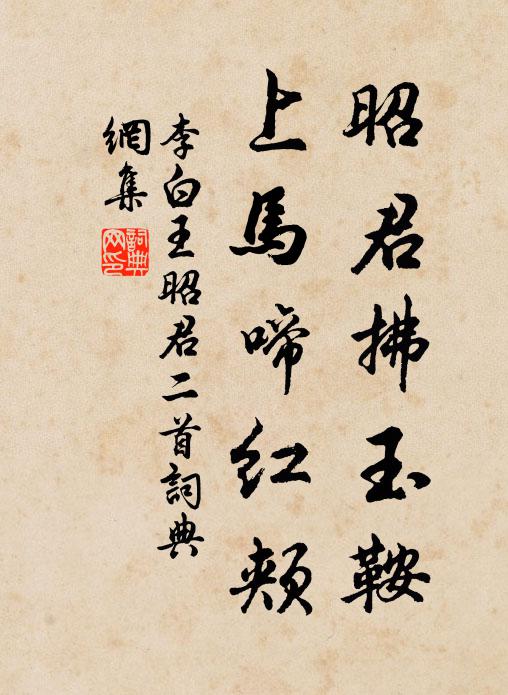 昭君拂玉鞍
上馬啼紅頰
李白王昭君二首詞典
網集
詞典
网印